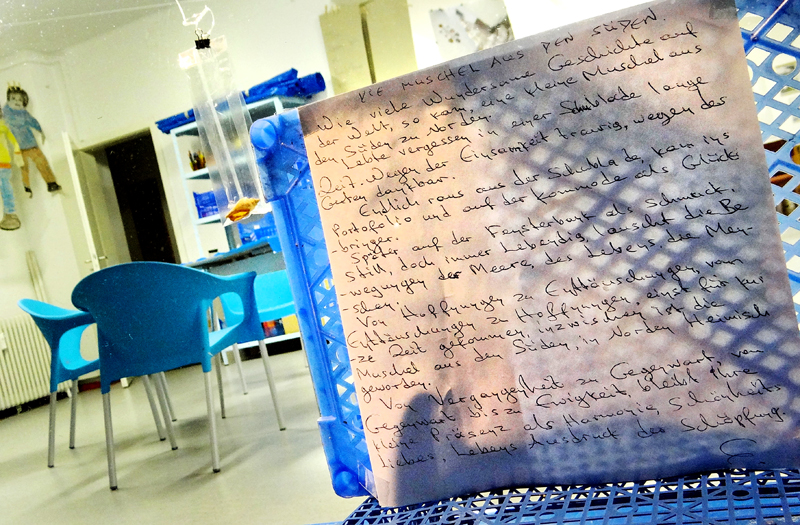 DIE MUSCHEL AUS DEN SÜDEN.
Wie viele Wundersame Geschichte auf
der Welt, so kam, eine kleine Muschel aus
den Süden zu Norden.
Lebte vergessen in einer Schublade lange
Zeit. Wegen der Einsamkeit traurig, wegen der
Guten dankbar.
Endlich raus aus der Schublade, kam ins
Portofolio und auf der Kommode als Glücks
bringer.
Später auf der Fensterbank als Schmuck.
Still, doch immer Lebendig, lauscht die Be
-wegungen der Meere, des Lebens, die Men-
schen.
Von Hoffnungen zu Enttäuschungen, vom
Enttäuschungen zu Hoffnungen, einst für kur
-ze Zeit gekommen, inzwischen ist die
Muschel aus den Süden, in Norden Heimisch
geworden.
Von Vergangenheit zu Gegenwart, von
Gegenwart bis zu Ewigkeit, bleibt ihre
kleine Präsenz als Harmonie, Schönheits
Liebes, Lebens Ausdruck der Schöpfung.